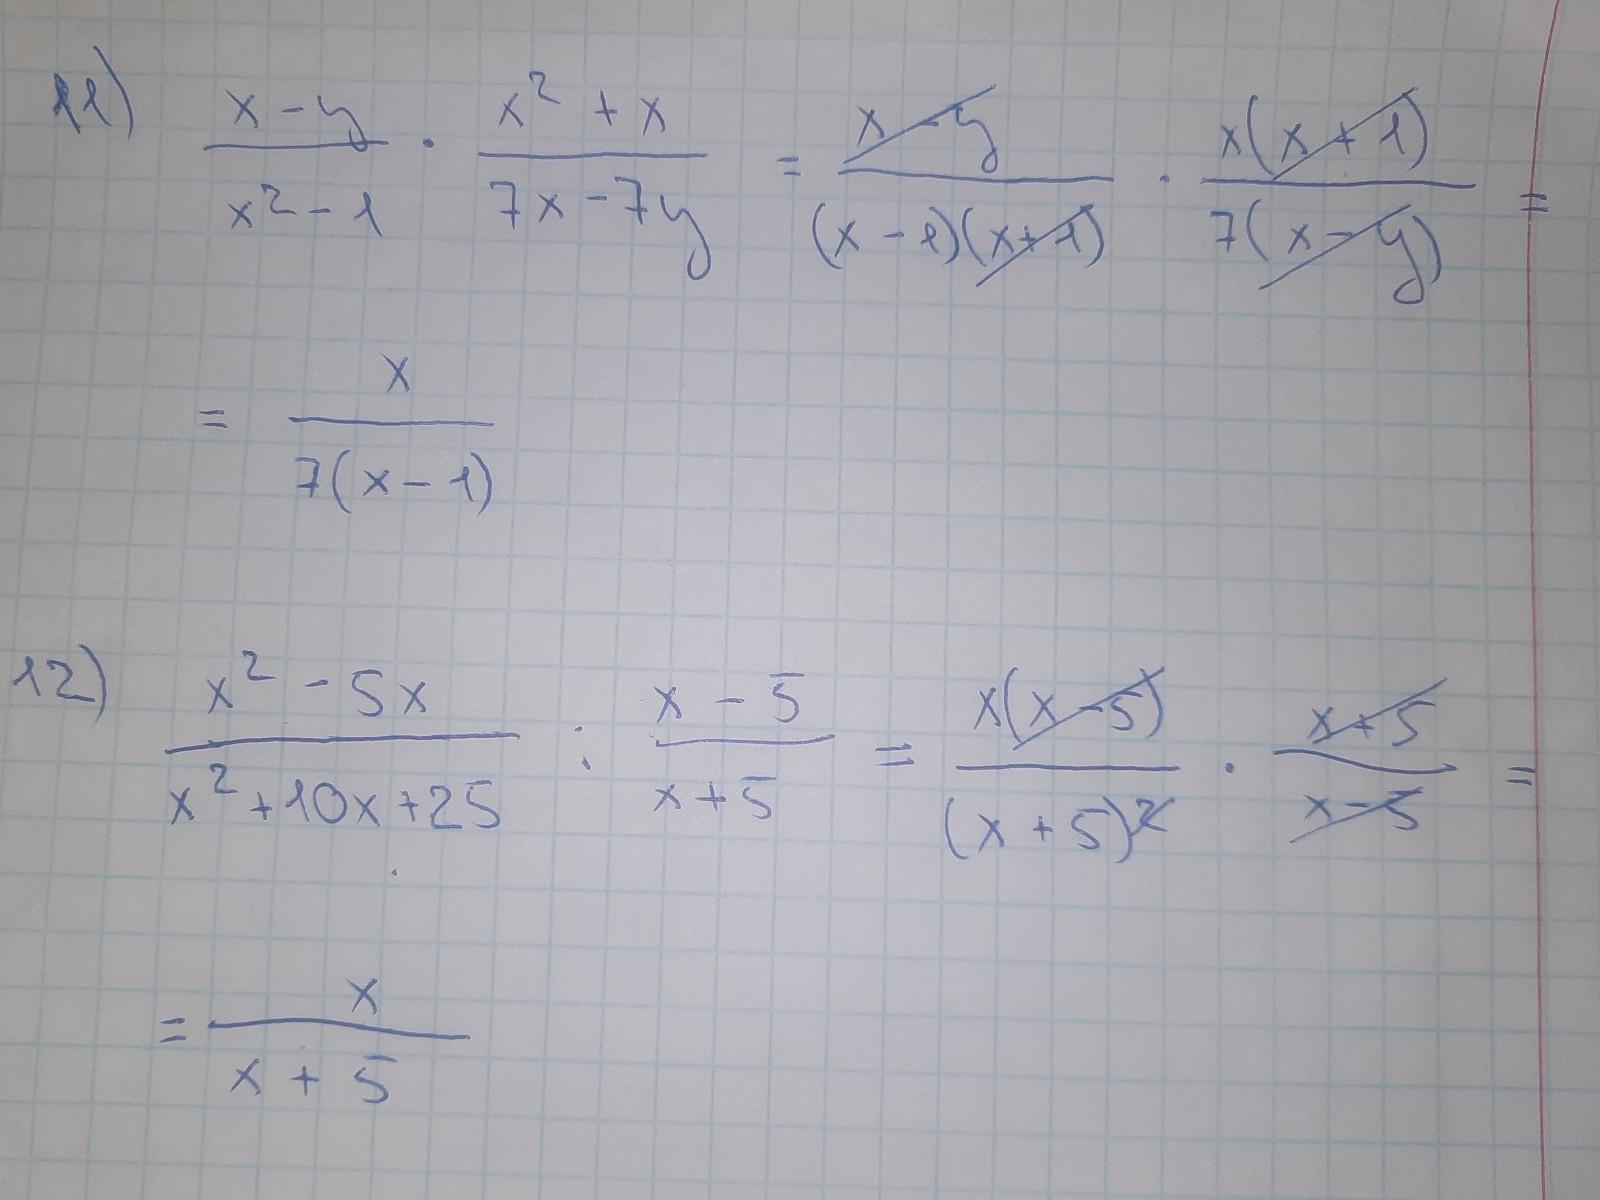 11) (x - y)/(x² - 1) · (x² + x)/(7x - 7y) = (x - y)/((x - 1)(x + 1)) · x(x + 1)/(7(x - y)) =
= x/(7(x - 1))
12) (x² - 5x)/(x² + 10x + 25) : (x - 5)/(x + 5) = x(x - 5)/(x + 5)² · (x + 5)/(x - 5) =
= x/(x + 5)